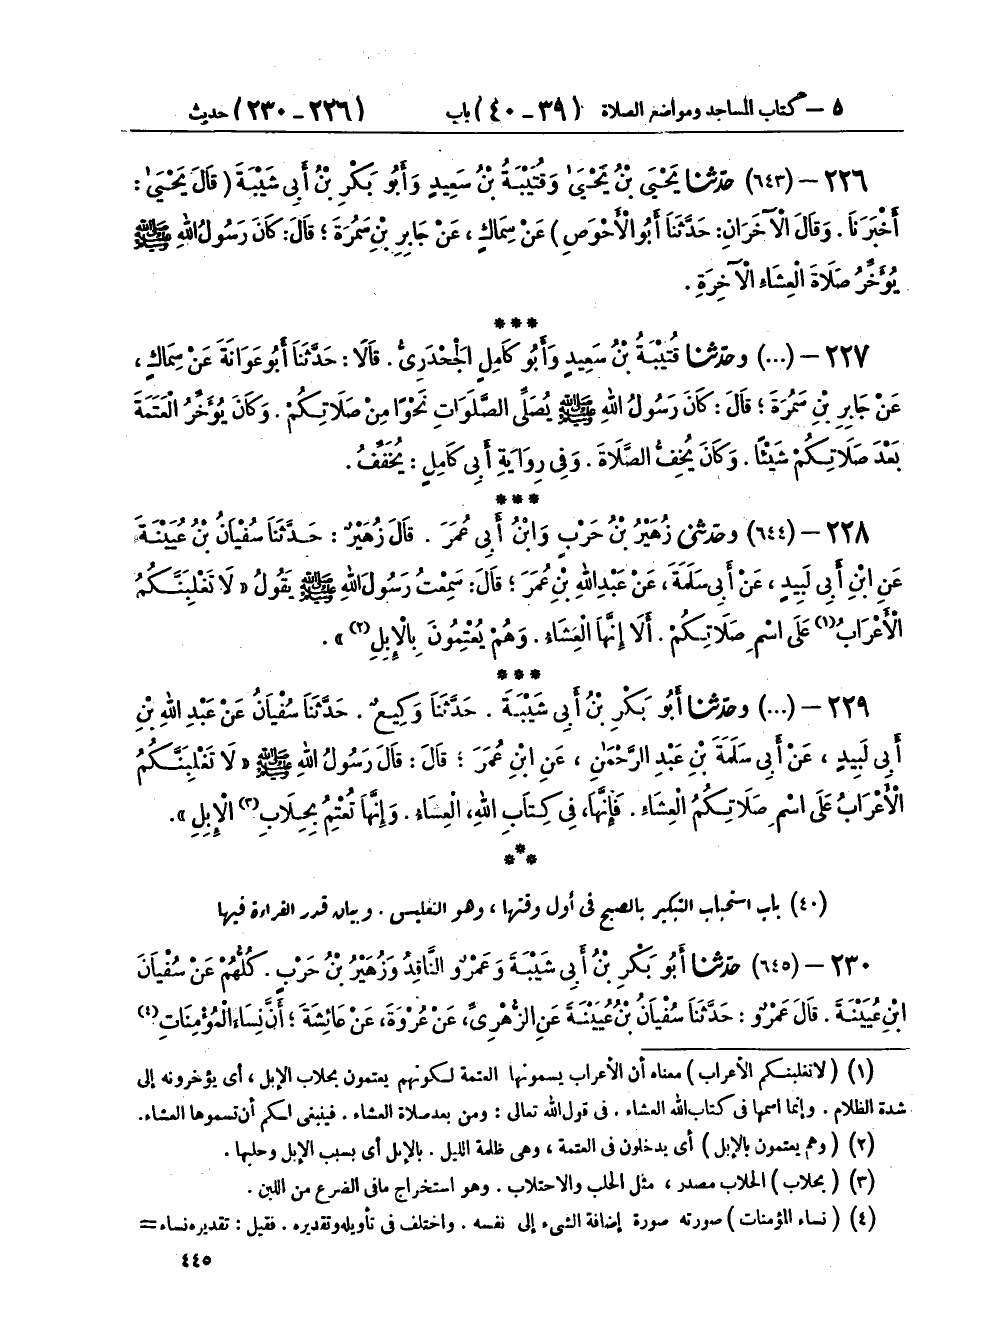 ٥ – كتاب المساجد ومواضع الصلاة (٣٩ – ٤٠) باب (٢٢٦ – ٢٣٠) حديث
٢٢٦ – (٦٤٣) حدّثنا يَحْيَى بْنُ يَحْيَىٰ وَقُتَيْبَةُ بْنُ سَعِيدٍ وَأَبُو بَكْرِ بْنُ أَبِي شَيْبَةَ (قَالَ يَحْيَىٰ:
أَخْبَرَنَا. وَقَالَ الْآخَرَانِ: حَدَّثَنَا أَبُو الْأَحْوَصِ) عَنْ سِمَاكٍ، عَنْ جَابِرِ بْنِ سَمُرَةَ؛ قَالَ: كَانَ رَسُولُ اللهِ ﷺ
يُؤَخِّرُ صَلَاةَ الْعِشَاءِ الْآخِرَةِ.
***
٢٢٧ – (...) وحدّثنا قُتَيْبَةُ بْنُ سَعِيدٍ وَأَبُو كَامِلٍ الْجَحْدَرِيُّ. قَالَا: حَدَّثَنَا أَبُو عَوَانَةَ عَنْ سِمَاكٍ،
عَنْ جَابِرِ بْنِ سَمُرَةَ؛ قَالَ: كَانَ رَسُولُ اللهِ ﷺ يُصَلِّي الصَّلَوَاتِ نَحْوًا مِنْ صَلَاتِكُمْ. وَكَانَ يُؤَخِّرُ الْعَتَمَةَ
بَعْدَ صَلَاتِكُمْ شَيْئًا. وَكَانَ يُخِفُّ الصَّلَاةَ. وَفِي رِوَايَةِ أَبِي كَامِلٍ: يُخَفِّفُ.
***
٢٢٨ – (٦٤٤) وحدّثني زُهَيْرُ بْنُ حَرْبٍ وَابْنُ أَبِي عُمَرَ. قَالَ زُهَيْرٌ: حَدَّثَنَا سُفْيَانُ بْنُ عُيَيْنَةَ
عَنِ ابْنِ أَبِي لَبِيدٍ، عَنْ أَبِي سَلَمَةَ، عَنْ عَبْدِ اللهِ بْنِ عُمَرَ؛ قَالَ: سَمِعْتُ رَسُولَ اللهِ ﷺ يَقُولُ «لَا تَغْلِبَنَّكُمُ
الْأَعْرَابُ(١) عَلَى اسْمِ صَلَاتِكُمْ. أَلَا إِنَّهَا الْعِشَاءُ. وَهُمْ يُعْتِمُونَ بِالْإِبِلِ(٢)».
***
٢٢٩ – (...) وحدّثنا أَبُو بَكْرِ بْنُ أَبِي شَيْبَةَ. حَدَّثَنَا وَكِيعٌ. حَدَّثَنَا سُفْيَانُ عَنْ عَبْدِ اللهِ بْنِ
أَبِي لَبِيدٍ، عَنْ أَبِي سَلَمَةَ بْنِ عَبْدِ الرَّحْمَٰنِ، عَنِ ابْنِ عُمَرَ؛ قَالَ: قَالَ رَسُولُ اللهِ ﷺ «لَا تَغْلِبَنَّكُمُ
الْأَعْرَابُ عَلَى اسْمِ صَلَاتِكُمُ الْعِشَاءِ. فَإِنَّهَا، فِي كِتَابِ اللهِ، الْعِشَاءُ. وَإِنَّهَا تُعْتِمُ بِحِلَابِ(٣) الْإِبِلِ».
***
(٤٠) باب استحباب التبكير بالصبح في أول وقتها، وهو التغليس. وبيان قدر القراءة فيها
٢٣٠ – (٦٤٥) حدّثنا أَبُو بَكْرِ بْنُ أَبِي شَيْبَةَ وَعَمْرٌو النَّاقِدُ وَزُهَيْرُ بْنُ حَرْبٍ. كُلُّهُمْ عَنْ سُفْيَانَ
ابْنِ عُيَيْنَةَ. قَالَ عَمْرٌو: حَدَّثَنَا سُفْيَانُ بْنُ عُيَيْنَةَ عَنِ الزُّهْرِيِّ، عَنْ عُرْوَةَ، عَنْ عَائِشَةَ؛ أَنَّ نِسَاءَ الْمُؤْمِنَاتِ(٤)
(١) (لا تغلبنكم الأعراب) معناه أن الأعراب يسمونها العتمة لكونهم يعتمون بحلاب الإبل، أي يؤخرونه إلى
شدة الظلام. وإنما اسمها في كتاب الله العشاء. في قول الله تعالى: ومن بعد صلاة العشاء. فينبغي لكم أن تسموها العشاء.
(٢) (وهم يعتمون بالإبل) أي يدخلون في العتمة، وهي ظلمة الليل. بالإبل أي بسبب الإبل وحلبها.
(٣) (بحلاب) الحلاب مصدر، مثل الحلب والاحتلاب. وهو استخراج ما في الضرع من اللبن.
(٤) (نساء المؤمنات) صورته صورة إضافة الشيء إلى نفسه. واختلف في تأويله وتقديره. فقيل: تقديره نساء =
٤٤٥